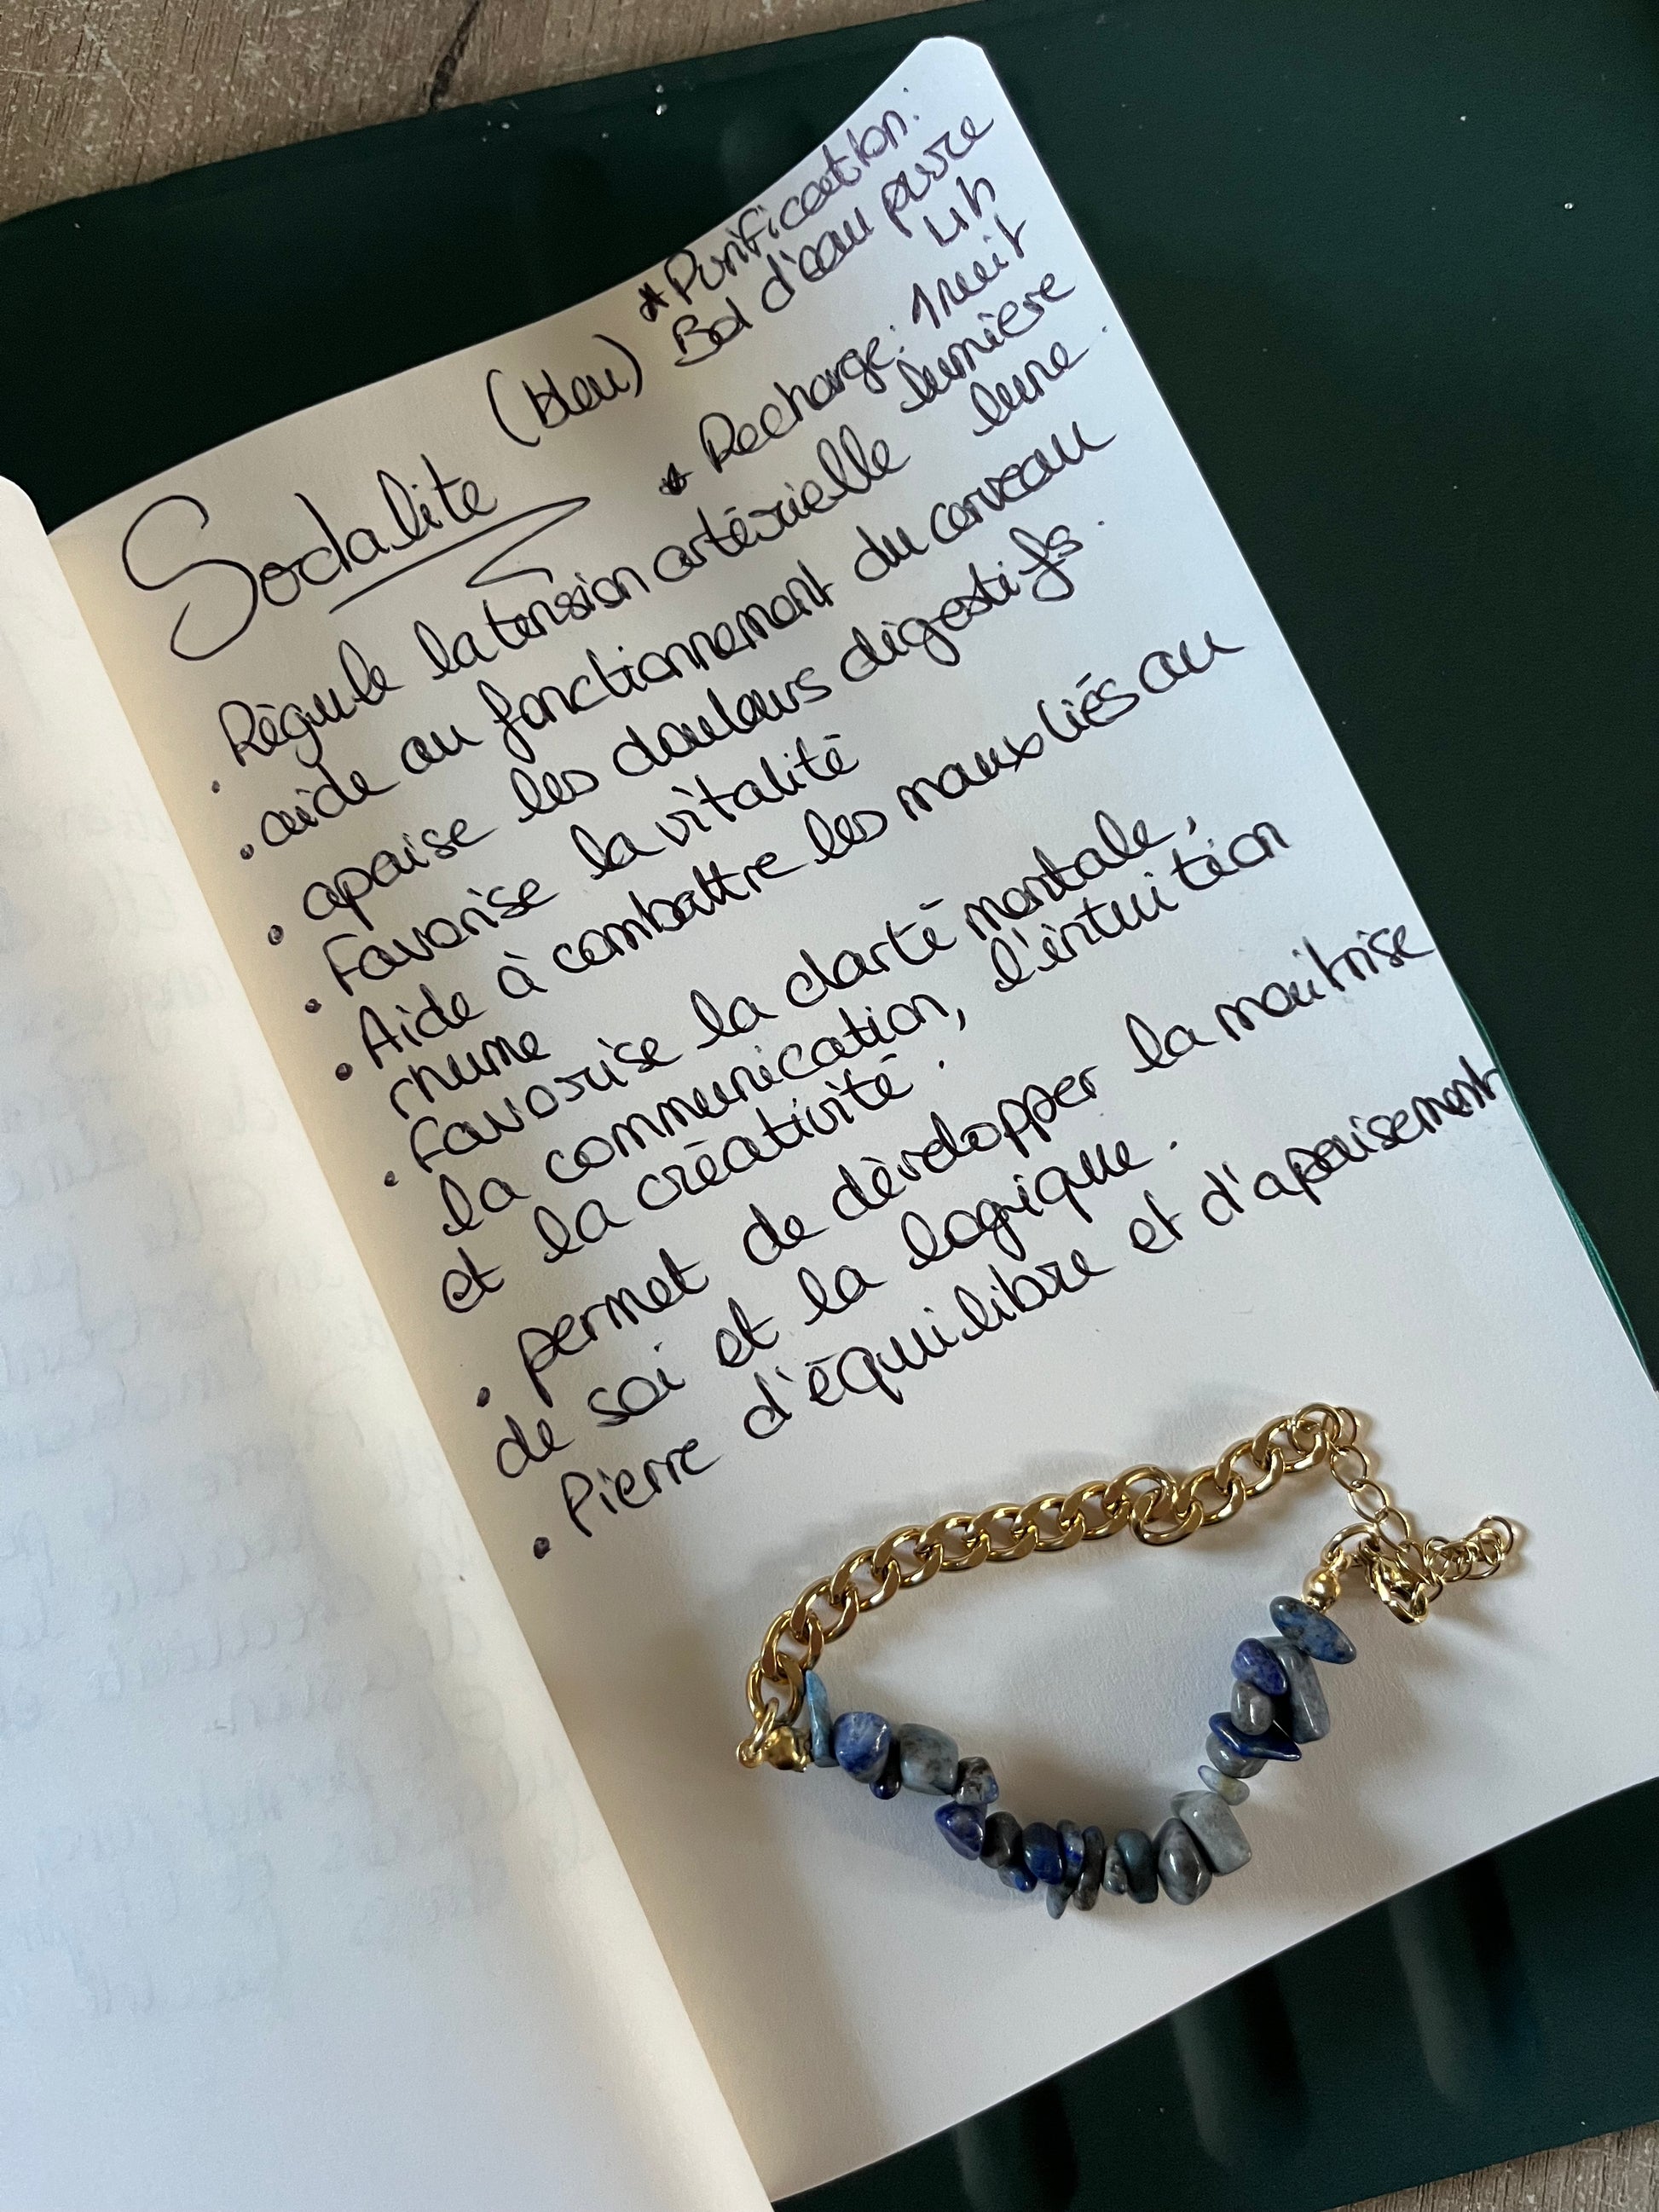 Sodalite (bleu)
* Purification:
Bol d'eau pure
4h
* Recharge: 1 nuit
lumière
lune.
. Régule la tension artérielle
. aide au fonctionnement du cerveau
. apaise les douleurs digestifs.
. Favorise la vitalité
. Aide à combattre les maux liés au
rhume
. favorise la clarté mentale,
la communication, l'intuition
et la créativité.
. permet de développer la maitrise
de soi et la logique.
. Pierre d'équilibre et d'apaisement